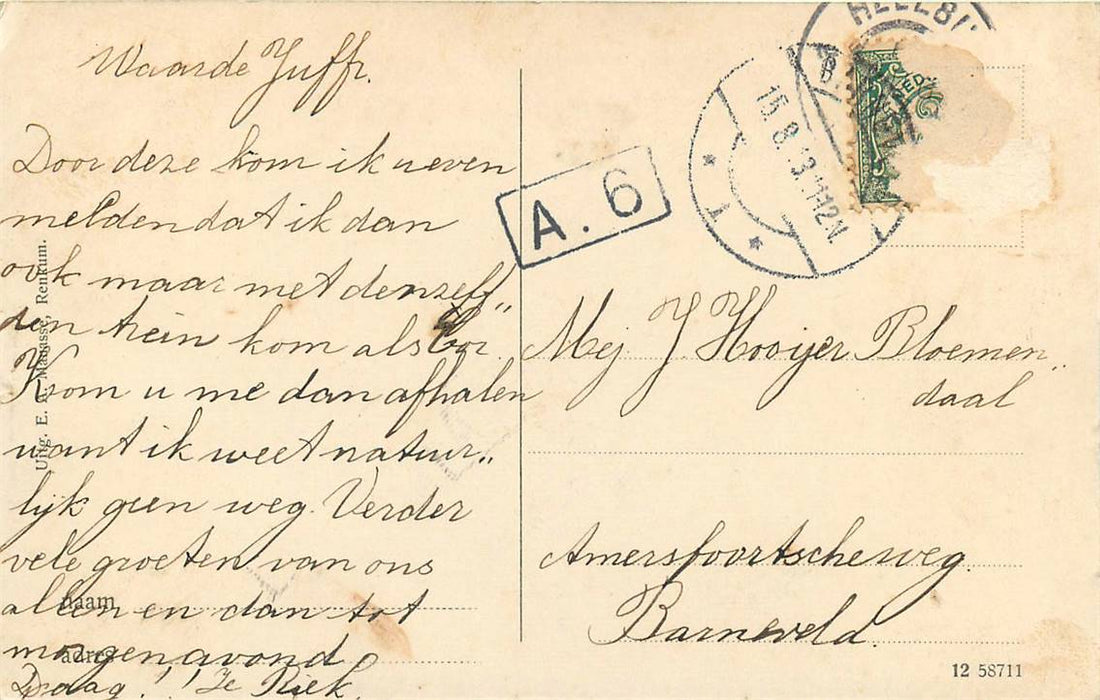 Waarde Juffr.
Door deze kom ik u even
melden dat ik dan
ook maar met denzelf„
den trein kom als Cor.
Kom u me dan afhalen
want ik weet natuur„
lijk geen weg. Verder
vele groeten van ons
allen en dan tot
morgenavond
Daag!! Je Riek.
naam
adres
Uitg. E. Magasse, Renkum.
A. 6
15.8.13.11-12N.
NED
Mej J Hooijer Bloemen„
daal
Amersfoortscheweg.
Barneveld.
12 58711